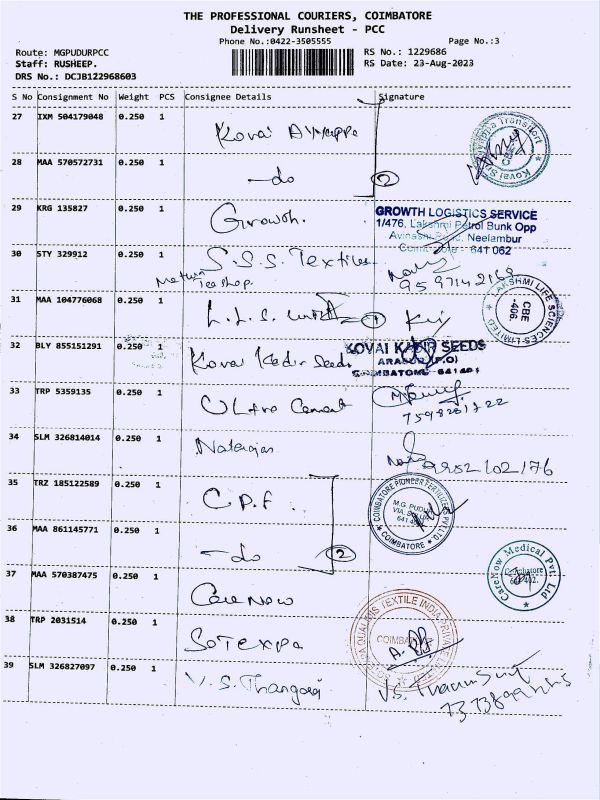 THE PROFESSIONAL COURIERS, COIMBATORE
Delivery Runsheet - PCC
Phone No.:0422-3505555
Page No.:3
Route: MGPUDURPCC
RS No.: 1229686
Staff: RUSHEEP.
RS Date: 23-Aug-2023
DRS No.: DCJB122968603
S No Consignment No Weight PCS Consignee Details Signature
27 IXM 504179048 0.250 1 Kovai Ayyappa
28 MAA 570572731 0.250 1 -do 2
29 KRG 135827 0.250 1 Growth.
GROWTH LOGISTICS SERVICE
1/476, Lakshmi Petrol Bunk Opp
Avinashi Road, Neelambur
Coimbatore - 641 062
30 STY 329912 0.250 1 S.S.S. Textiles
Tea shop.
31 MAA 104776068 0.250 1 L.L.S. 1
LAKSHMI LIFE SCIENCES LIMITED
CBE
-406.
32 BLY 855151291 0.250 1 Kovai Kadir Seeds
KOVAI KADIR SEEDS
ARASUR (P.O)
COIMBATORE - 641401
33 TRP 5359135 0.250 1 Ultra Cement
34 SLM 326814014 0.250 1 Natarajan
9952102176
35 TRZ 185122589 0.250 1 C.P.F.
COIMBATORE PIONEER FERTILIZERS PVT LTD
M.G. PUDUR
COIMBATORE
36 MAA 861145771 0.250 1 -do 2
37 MAA 570387475 0.250 1 Care Now
CareNow Medical Pvt. Ltd
Coimbatore
38 TRP 2031514 0.250 1 Sotexpa
SOTEXPA QUALIDIS TEXTILE INDIA PRIVATE LIMITED
COIMBATORE
39 SLM 326827097 0.250 1 V.S. Thangaraj